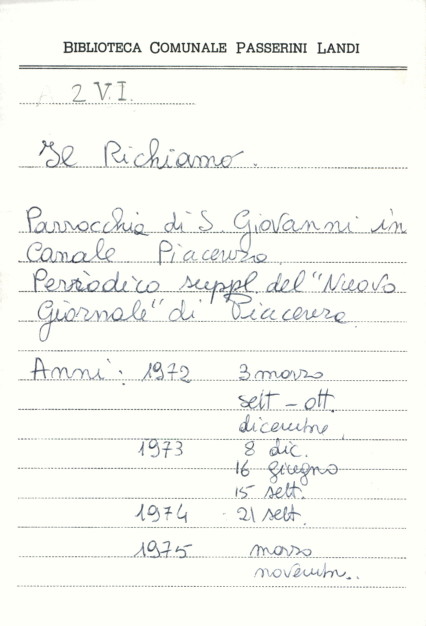 BIBLIOTECA COMUNALE PASSERINI LANDI
2 V.I.
Il Richiamo.
Parrocchia di S. Giovanni in
Canale Piacenza
Periodico suppl. del "Nuovo
Giornale" di Piacenza
Anni: 1972 3 marzo
sett - ott.
dicembre
1973 8 dic.
16 giugno
15 sett.
1974 - 21 sett.
1975 marzo
novembre..